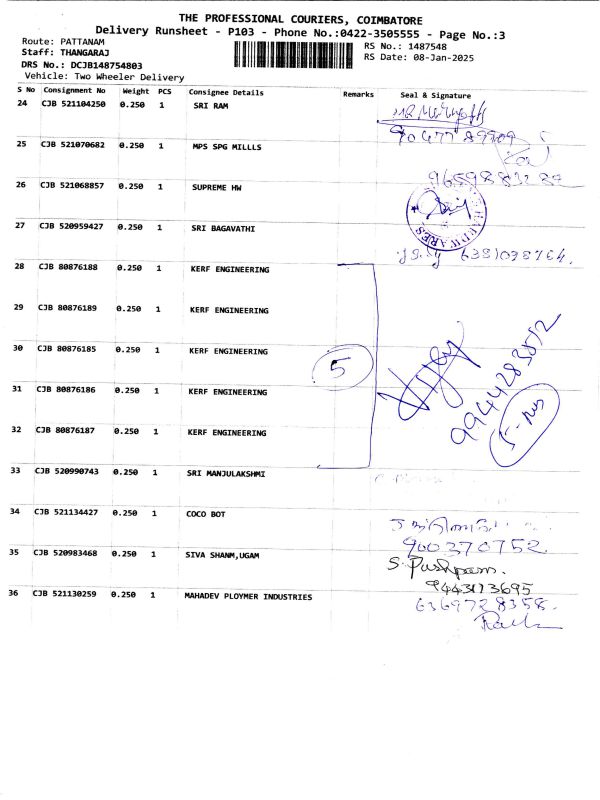 THE PROFESSIONAL COURIERS, COIMBATORE
Delivery Runsheet - P103 - Phone No.:0422-3505555 - Page No.:3
Route: PATTANAM
Staff: THANGARAJ
DRS No.: DCJB148754803
Vehicle: Two Wheeler Delivery
RS No.: 1487548
RS Date: 08-Jan-2025
S No Consignment No Weight PCS Consignee Details Remarks Seal & Signature
24 CJB 521104250 0.250 1 SRI RAM
25 CJB 521070682 0.250 1 MPS SPG MILLLS
26 CJB 521068857 0.250 1 SUPREME HW
27 CJB 520959427 0.250 1 SRI BAGAVATHI
28 CJB 80876188 0.250 1 KERF ENGINEERING
29 CJB 80876189 0.250 1 KERF ENGINEERING
30 CJB 80876185 0.250 1 KERF ENGINEERING
5
9944283812
31 CJB 80876186 0.250 1 KERF ENGINEERING
32 CJB 80876187 0.250 1 KERF ENGINEERING
33 CJB 520990743 0.250 1 SRI MANJULAKSHMI
34 CJB 521134427 0.250 1 COCO BOT
900370752
35 CJB 520983468 0.250 1 SIVA SHANM,UGAM S. Pushpam.
9443173695
36 CJB 521130259 0.250 1 MAHADEV PLOYMER INDUSTRIES 6369728358.